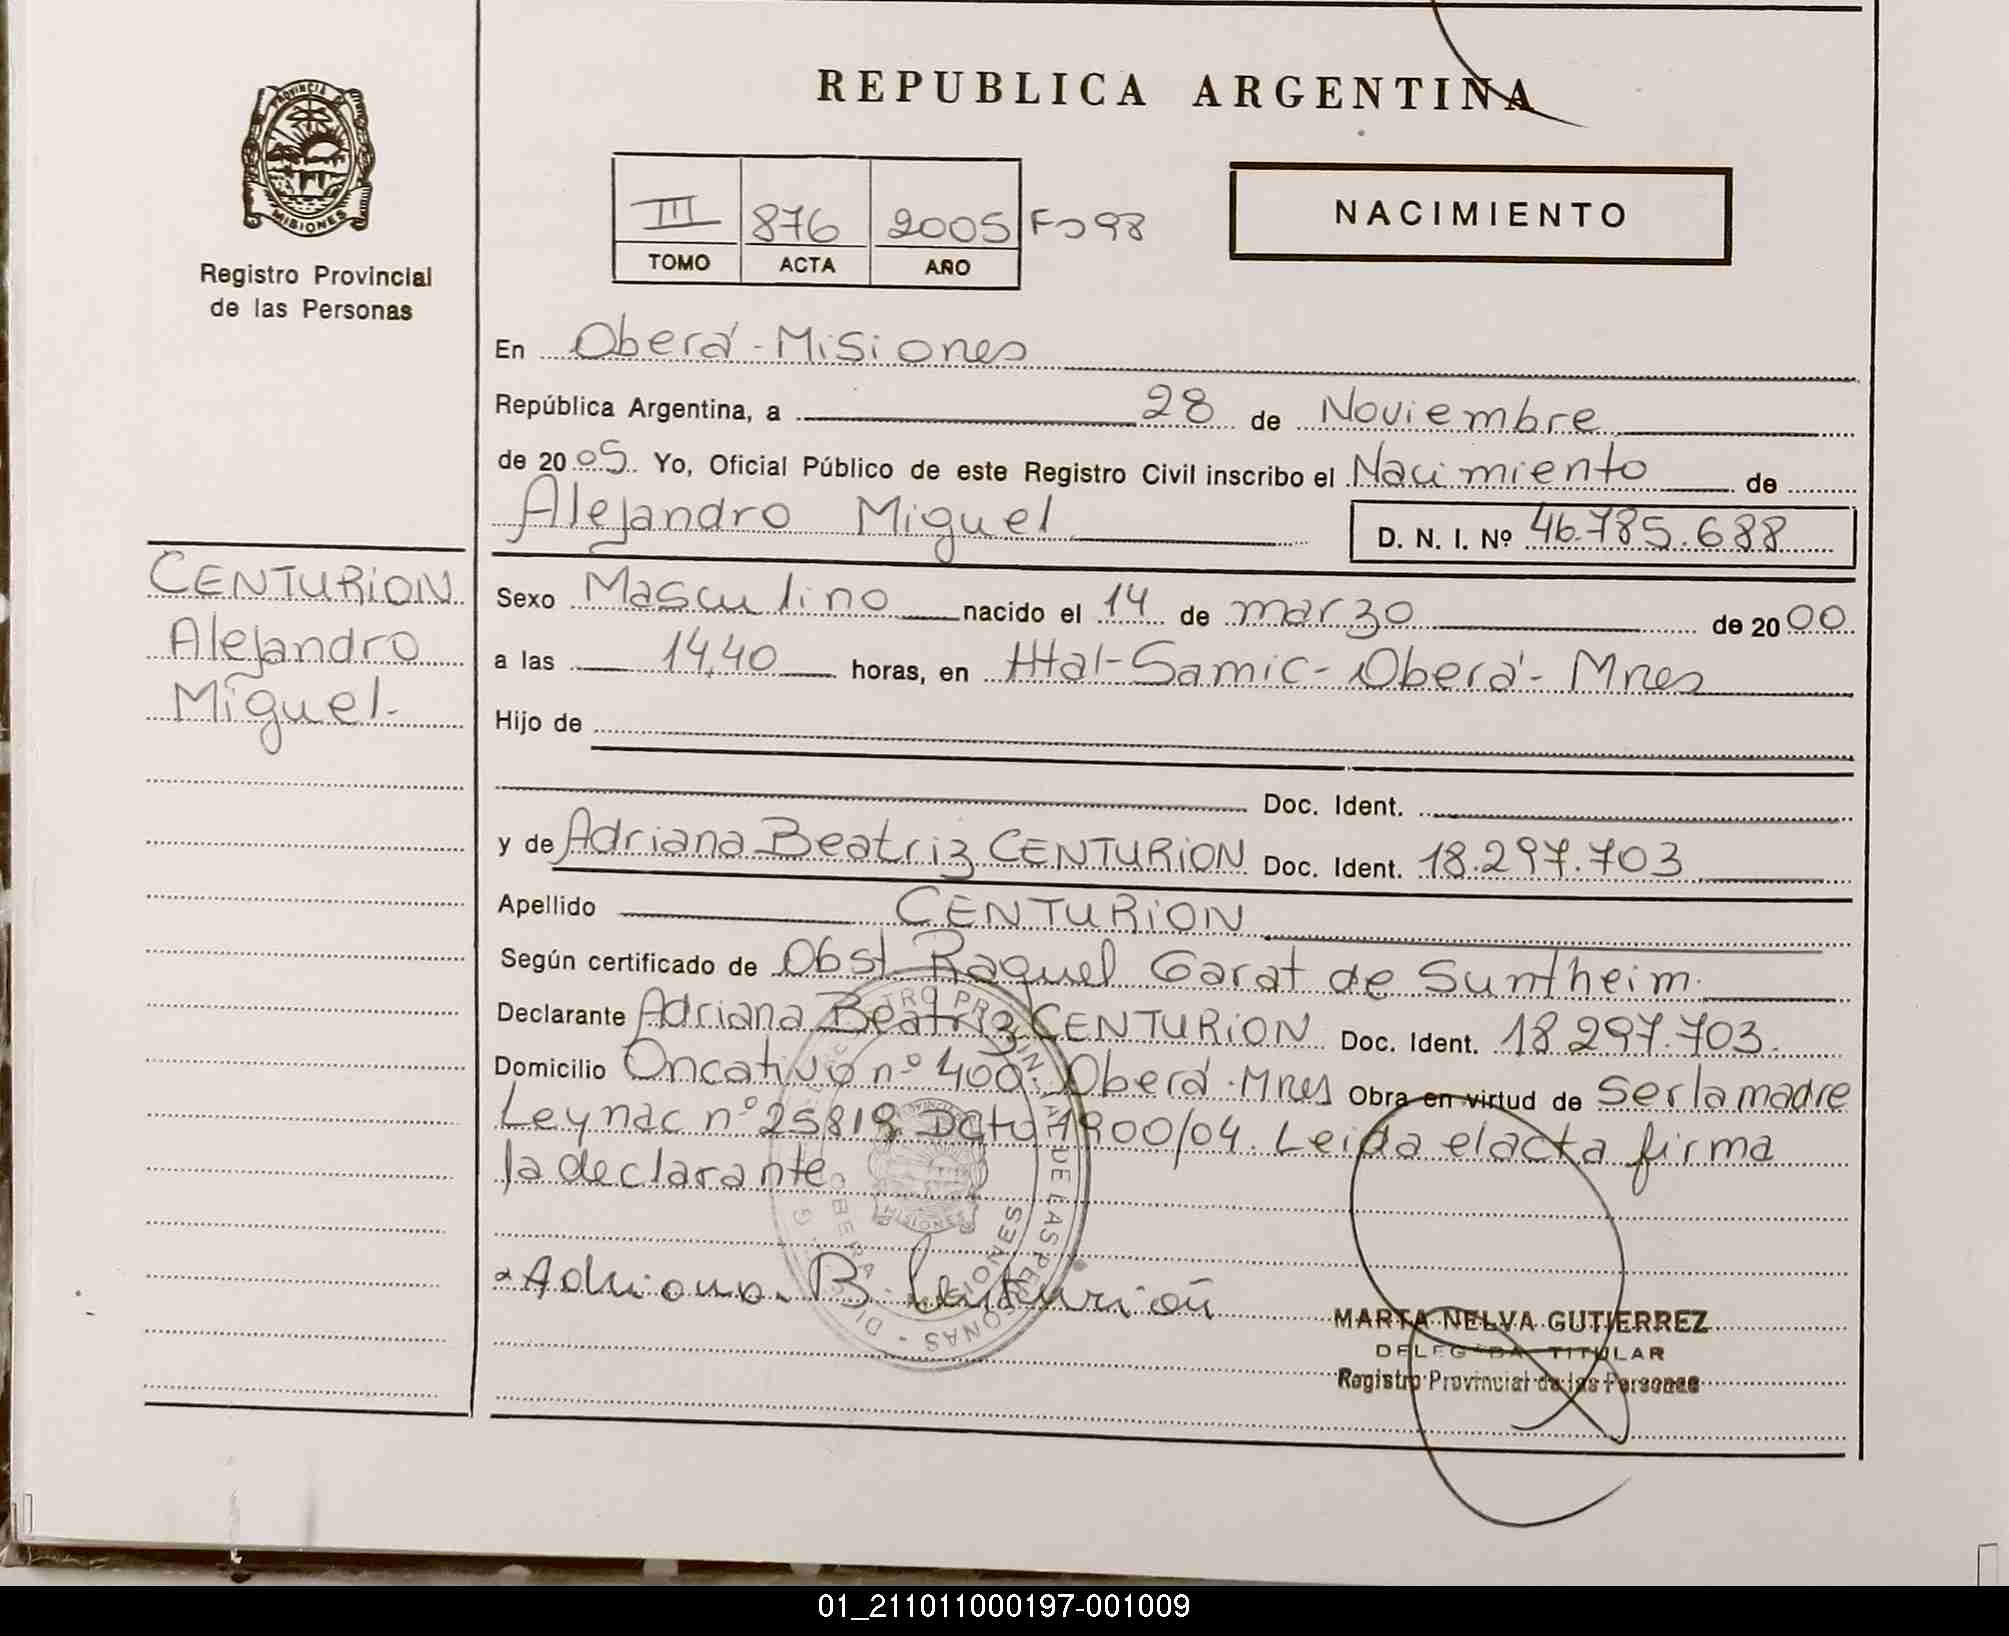 REPUBLICA ARGENTINA
PROVINCIA DE
MISIONES
Registro Provincial
de las Personas
III 876 2005 Fo 98
TOMO ACTA AÑO
NACIMIENTO
En Oberá - Misiones
República Argentina, a 28 de Noviembre
de 2005. Yo, Oficial Público de este Registro Civil inscribo el Nacimiento de
Alejandro Miguel D. N. I. Nº 46.785.688
CENTURION
Alejandro
Miguel-
Sexo Masculino nacido el 14 de marzo de 2000
a las 14,40 horas, en Htal-Samic-Oberá- Mnes
Hijo de
Doc. Ident.
y de Adriana Beatriz CENTURION Doc. Ident. 18.297.703
Apellido CENTURION
Según certificado de Obst Raquel Garat de Suntheim.
Declarante Adriana Beatriz CENTURION Doc. Ident. 18 297.703.
Domicilio Oncativo nº 400. Oberá-Mnes Obra en virtud de ser la madre
Ley nac nº 25819 Dcto 1900/04. Leida el acta firma
la declarante.
Adriana B. Centurión
MARTA NELVA GUTIERREZ
DELEGADA TITULAR
Registro Provincial de las Personas
01_211011000197-001009